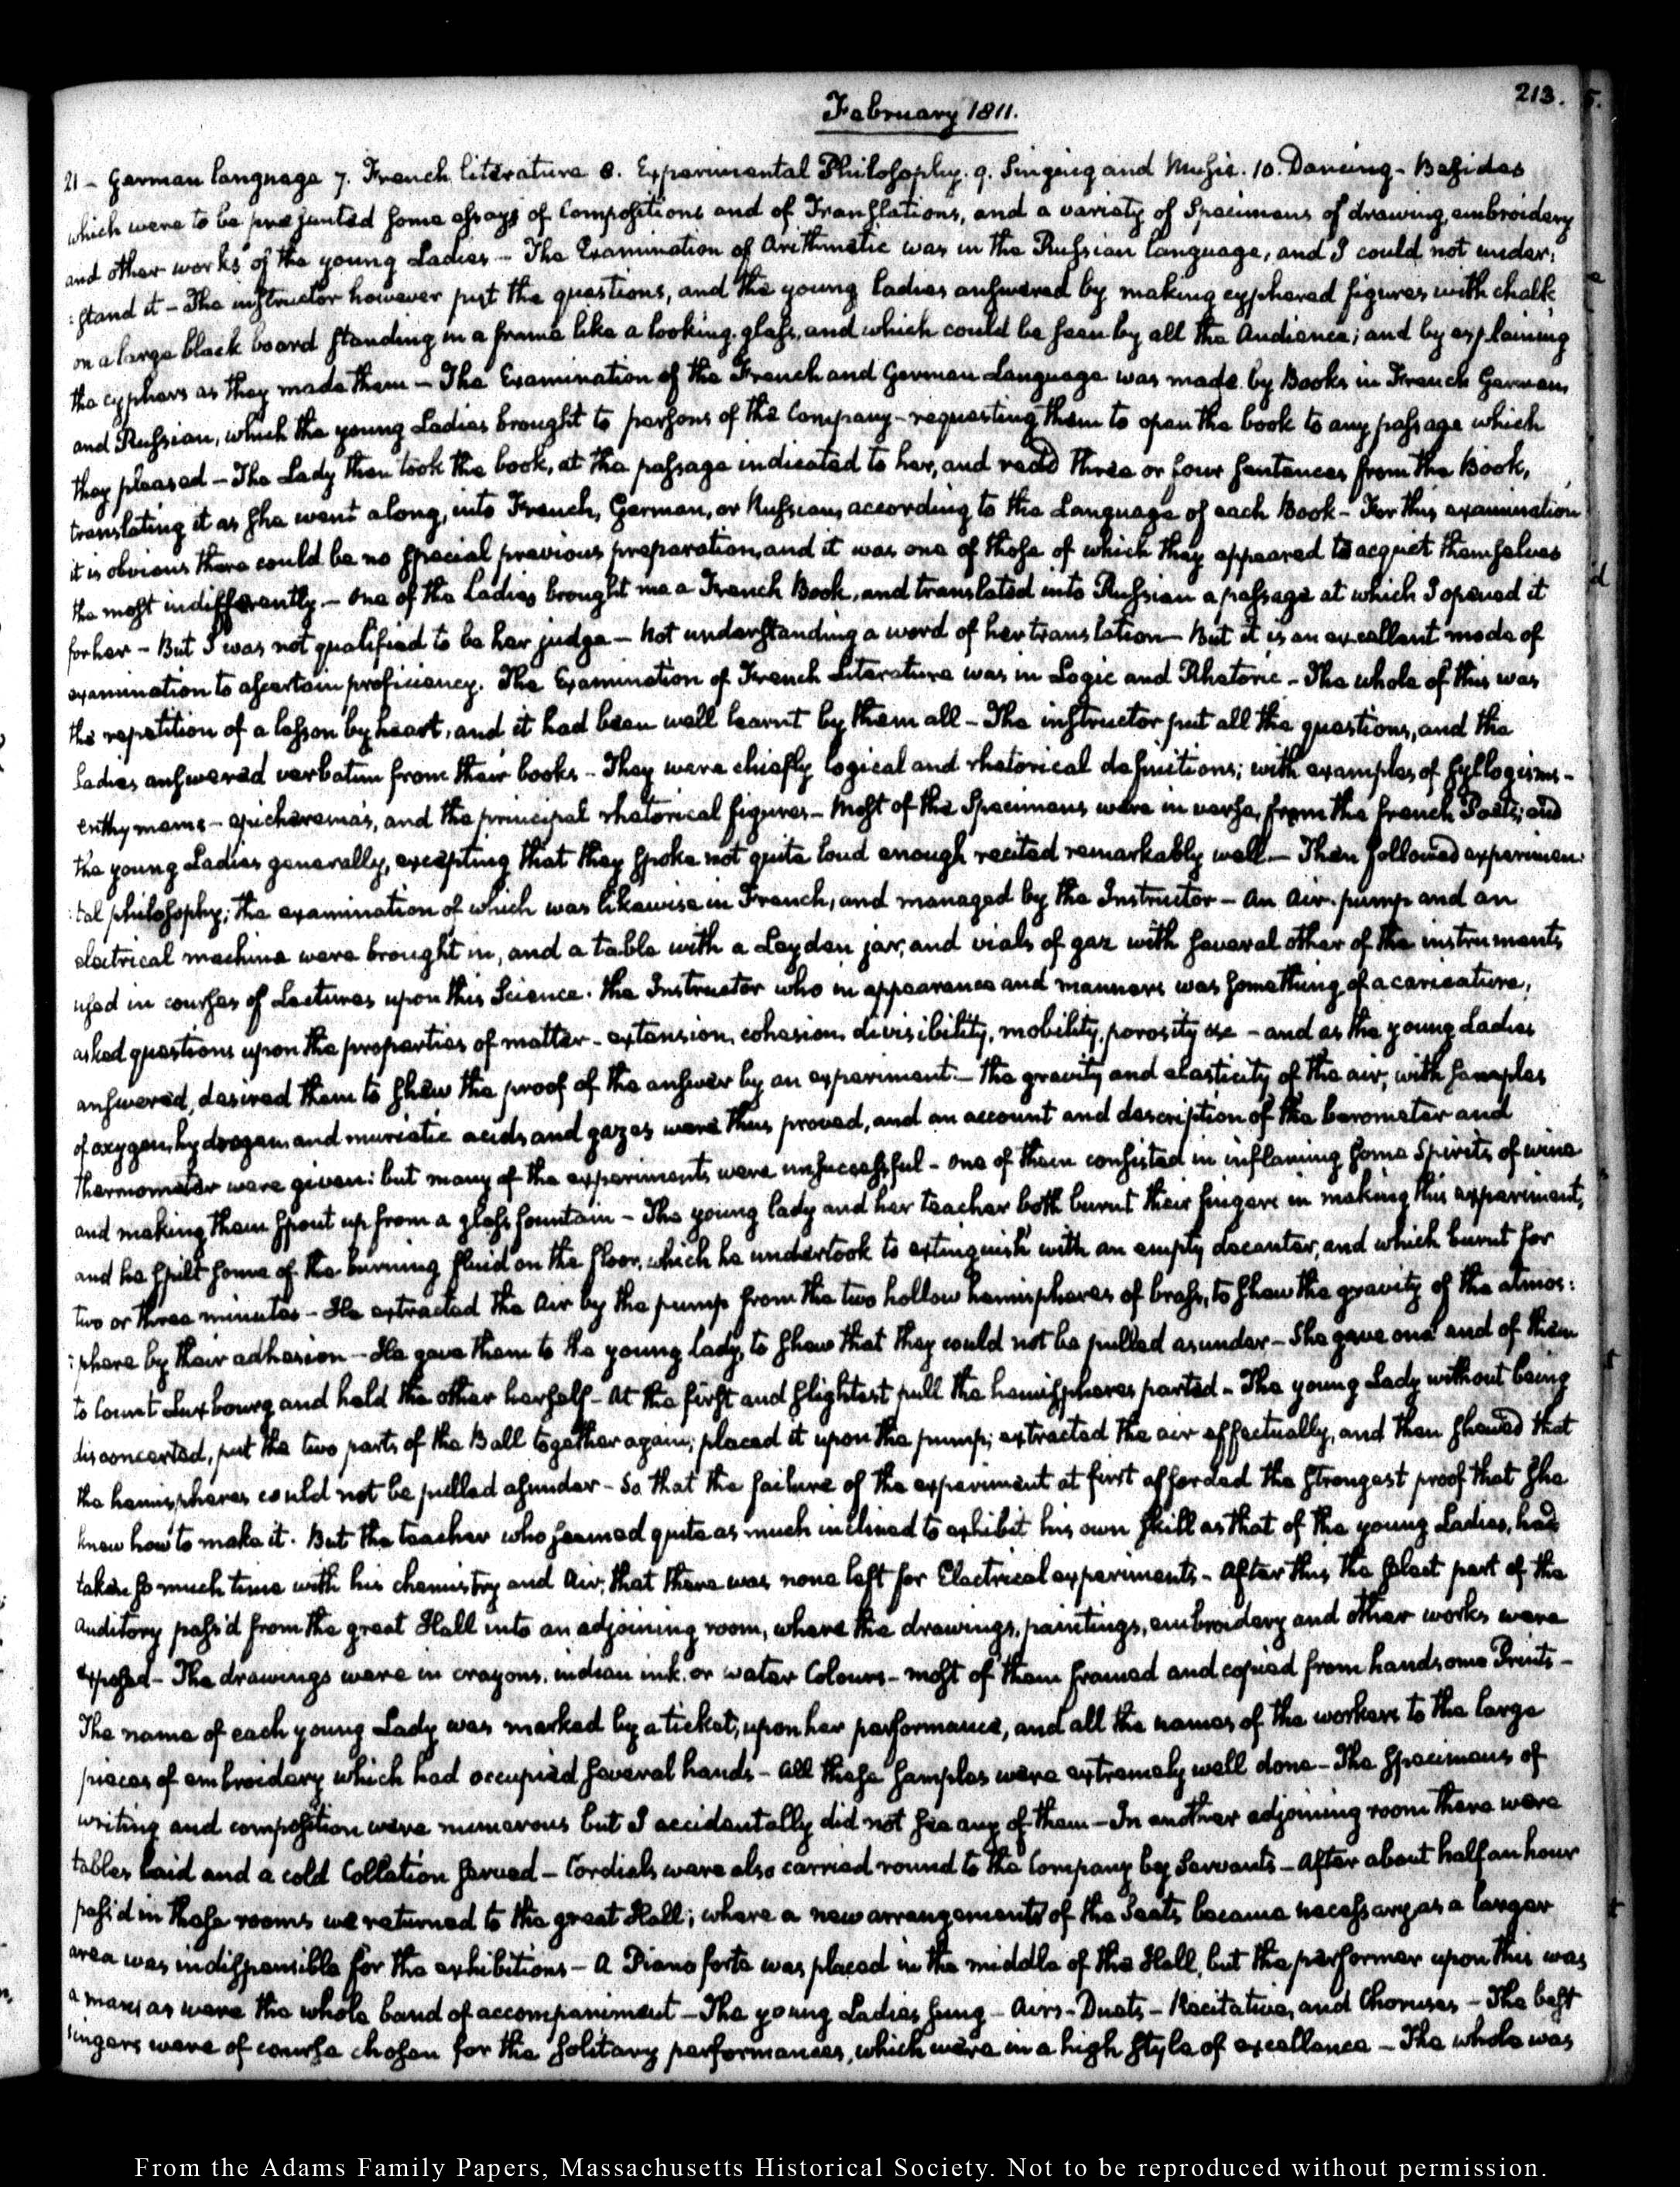 213.
February 1811.
21 - German language 7. French literature 8. Experimental Philosophy. 9. Singing and Music. 10. Dancing - Besides
which were to be presented some essays of Compositions and of Translations, and a variety of Specimens of drawing, embroidery
and other works of the young Ladies - The Examination of Arithmetic was in the Russian language, and I could not under:
:stand it - The instructor however put the questions, and the young ladies answered by making cyphered figures with chalk
on a large black board standing in a frame like a looking-glass, and which could be seen by all the Audience; and by explaining
the cyphers as they made them - The Examination of the French and German Language was made by Books in French German,
and Russian, which the young Ladies brought to persons of the Company - requesting them to open the book to any passage which
they pleased - The Lady then took the book, at the passage indicated to her, and read three or four sentences from the Book,
translating it as she went along, into French, German, or Russian, according to the Language of each Book - For this examination
it is obvious there could be no special previous preparation, and it was one of those of which they appeared to acquet themselves
the most indifferently - One of the Ladies brought me a French Book, and translated into Russian a passage at which I opened it
for her - But I was not qualified to be her judge - Not understanding a word of her translation - But it is an excellent mode of
examination to ascertain proficiency. The Examination of French Literature was in Logic and Rhetoric - The whole of this was
the repetition of a lesson by heart, and it had been well learnt by them all - The instructor put all the questions, and the
ladies answered verbatim from their books - They were chiefly logical and rhetorical definitions; with examples of syllogisms -
enthymems - epicheremas, and the principal rhetorical figures - Most of the Specimens were in verse, from the french Poets; and
the young Ladies generally, excepting that they spoke not quite loud enough recited remarkably well - Then followed experimen:
:tal philosophy; the examination of which was likewise in French, and managed by the Instructor - An Air-pump and an
electrical machine were brought in, and a table with a Leyden jar, and vials of gaz with several other of the instruments
used in courses of Lectures upon this Science. The Instructor who in appearance and manners was something of a caricature,
asked questions upon the properties of matter - extension, cohesion, divisibility, mobility, porosity &c - and as the young Ladies
answered, desired them to shew the proof of the answer by an experiment. - The gravity and elasticity of the air, with samples
of oxygen, hydrogen and muriatic acids and gazes were thus proved, and an account and description of the barometer and
thermometer were given: but many of the experiments were unsuccessful - One of them consisted in inflaming some Spirits of wine
and making them spout up from a glass fountain - The young lady and her teacher both burnt their fingers in making this experiment,
and he spilt some of the burning fluid on the floor, which he undertook to extinguish with an empty decanter, and which burnt for
two or three minutes - He extracted the Air by the pump from the two hollow hemispheres of brass, to shew the gravity of the atmos:
:phere by their adhesion - He gave them to the young lady, to shew that they could not be pulled asunder - She gave one end of them
to Count Luxbourg and held the other herself - At the first and slightest pull the hemispheres parted - The young Lady without being
disconcerted, put the two parts of the Ball together again; placed it upon the pump; extracted the air effectually, and then shewed that
the hemispheres could not be pulled asunder - So that the failure of the experiment at first afforded the strongest proof that she
knew how to make it. But the teacher who seemed quite as much inclined to exhibit his own skill as that of the young Ladies, had
taken so much time with his chemistry and Air, that there was none left for Electrical experiments - After this the select part of the
Auditory pass'd from the great Hall into an adjoining room, where the drawings, paintings, embroidery and other works were
exposed - The drawings were in crayons, indian ink, or water Colours - most of them framed and copied from handsome Prints -
The name of each young Lady was marked by a ticket, upon her performance, and all the names of the workers to the large
pieces of embroidery which had occupied several hands - All these samples were extremely well done - The specimens of
writing and composition were numerous but I accidentally did not see any of them - In another adjoining room there were
tables laid and a cold Collation served - Cordials were also carried round to the Company by Servants - After about half an hour
pass'd in those rooms we returned to the great Hall; where a new arrangement of the Seats became necessary, as a larger
area was indispensible for the exhibitions - A Piano forte was placed in the middle of the Hall, but the performer upon this was
a man; as were the whole band of accompaniment - The young Ladies sung - Airs - Duets - Recitative, and Choruses - The best
singers were of course chosen for the solitary performances, which were in a high style of excellence - The whole was
From the Adams Family Papers, Massachusetts Historical Society. Not to be reproduced without permission.